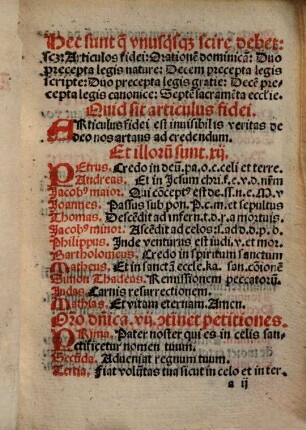 Hec sunt q̃ vnusq̃sq̃ȝ scire debet:
scȝ: Articulos fidei: Orationẽ dominicã: Duo
precepta legis nature: Decem precepta legis
scripte: Duo precepta legis gratie: Decẽ pre-
cepta legis canonice: Septẽ sacramẽta ecclie.
Quid sit articulus fidei.
ARticulus fidei est inuisibilis veritas de
deo nos artans ad credendum.
Et illorũ sunt .xij.
PEtrus. Credo in deũ. pa. o. c. celi et terre.
Andreas. Et in Jesum chri. f. e. v. d. nr̃m
Jacobꝰ maior. Qui cõceptꝰ est de. s. s. n. e. M. v
Joannes. Passus sub pon. P. c. m. et sepultus
Thomas. Descẽdit ad infern. t. d. r. a mortuis.
Jacobꝰ minor. Ascẽdit ad celos: s. ad. d. p. o.
Philippus. Inde venturus est iudi. v. et mor.
Bartholomeus. Credo in spiritum sanctum
Matheus. Et in sanctã eccle. ka. san. cõionẽ
Simon Thadeus. Remissionem peccatorũ
Judas. Carnis resurrectionem.
Mathias. Et vitam eternam. Amen.
Oro dñica. vij. ↄtinet petitiones.
PRima. Pater noster qui es in celis san-
ctificetur nomen tuum.
Secũda. Adueniat regnum tuum.
Tertia. Fiat volũtas tua sicut in celo et in ter.
a ij